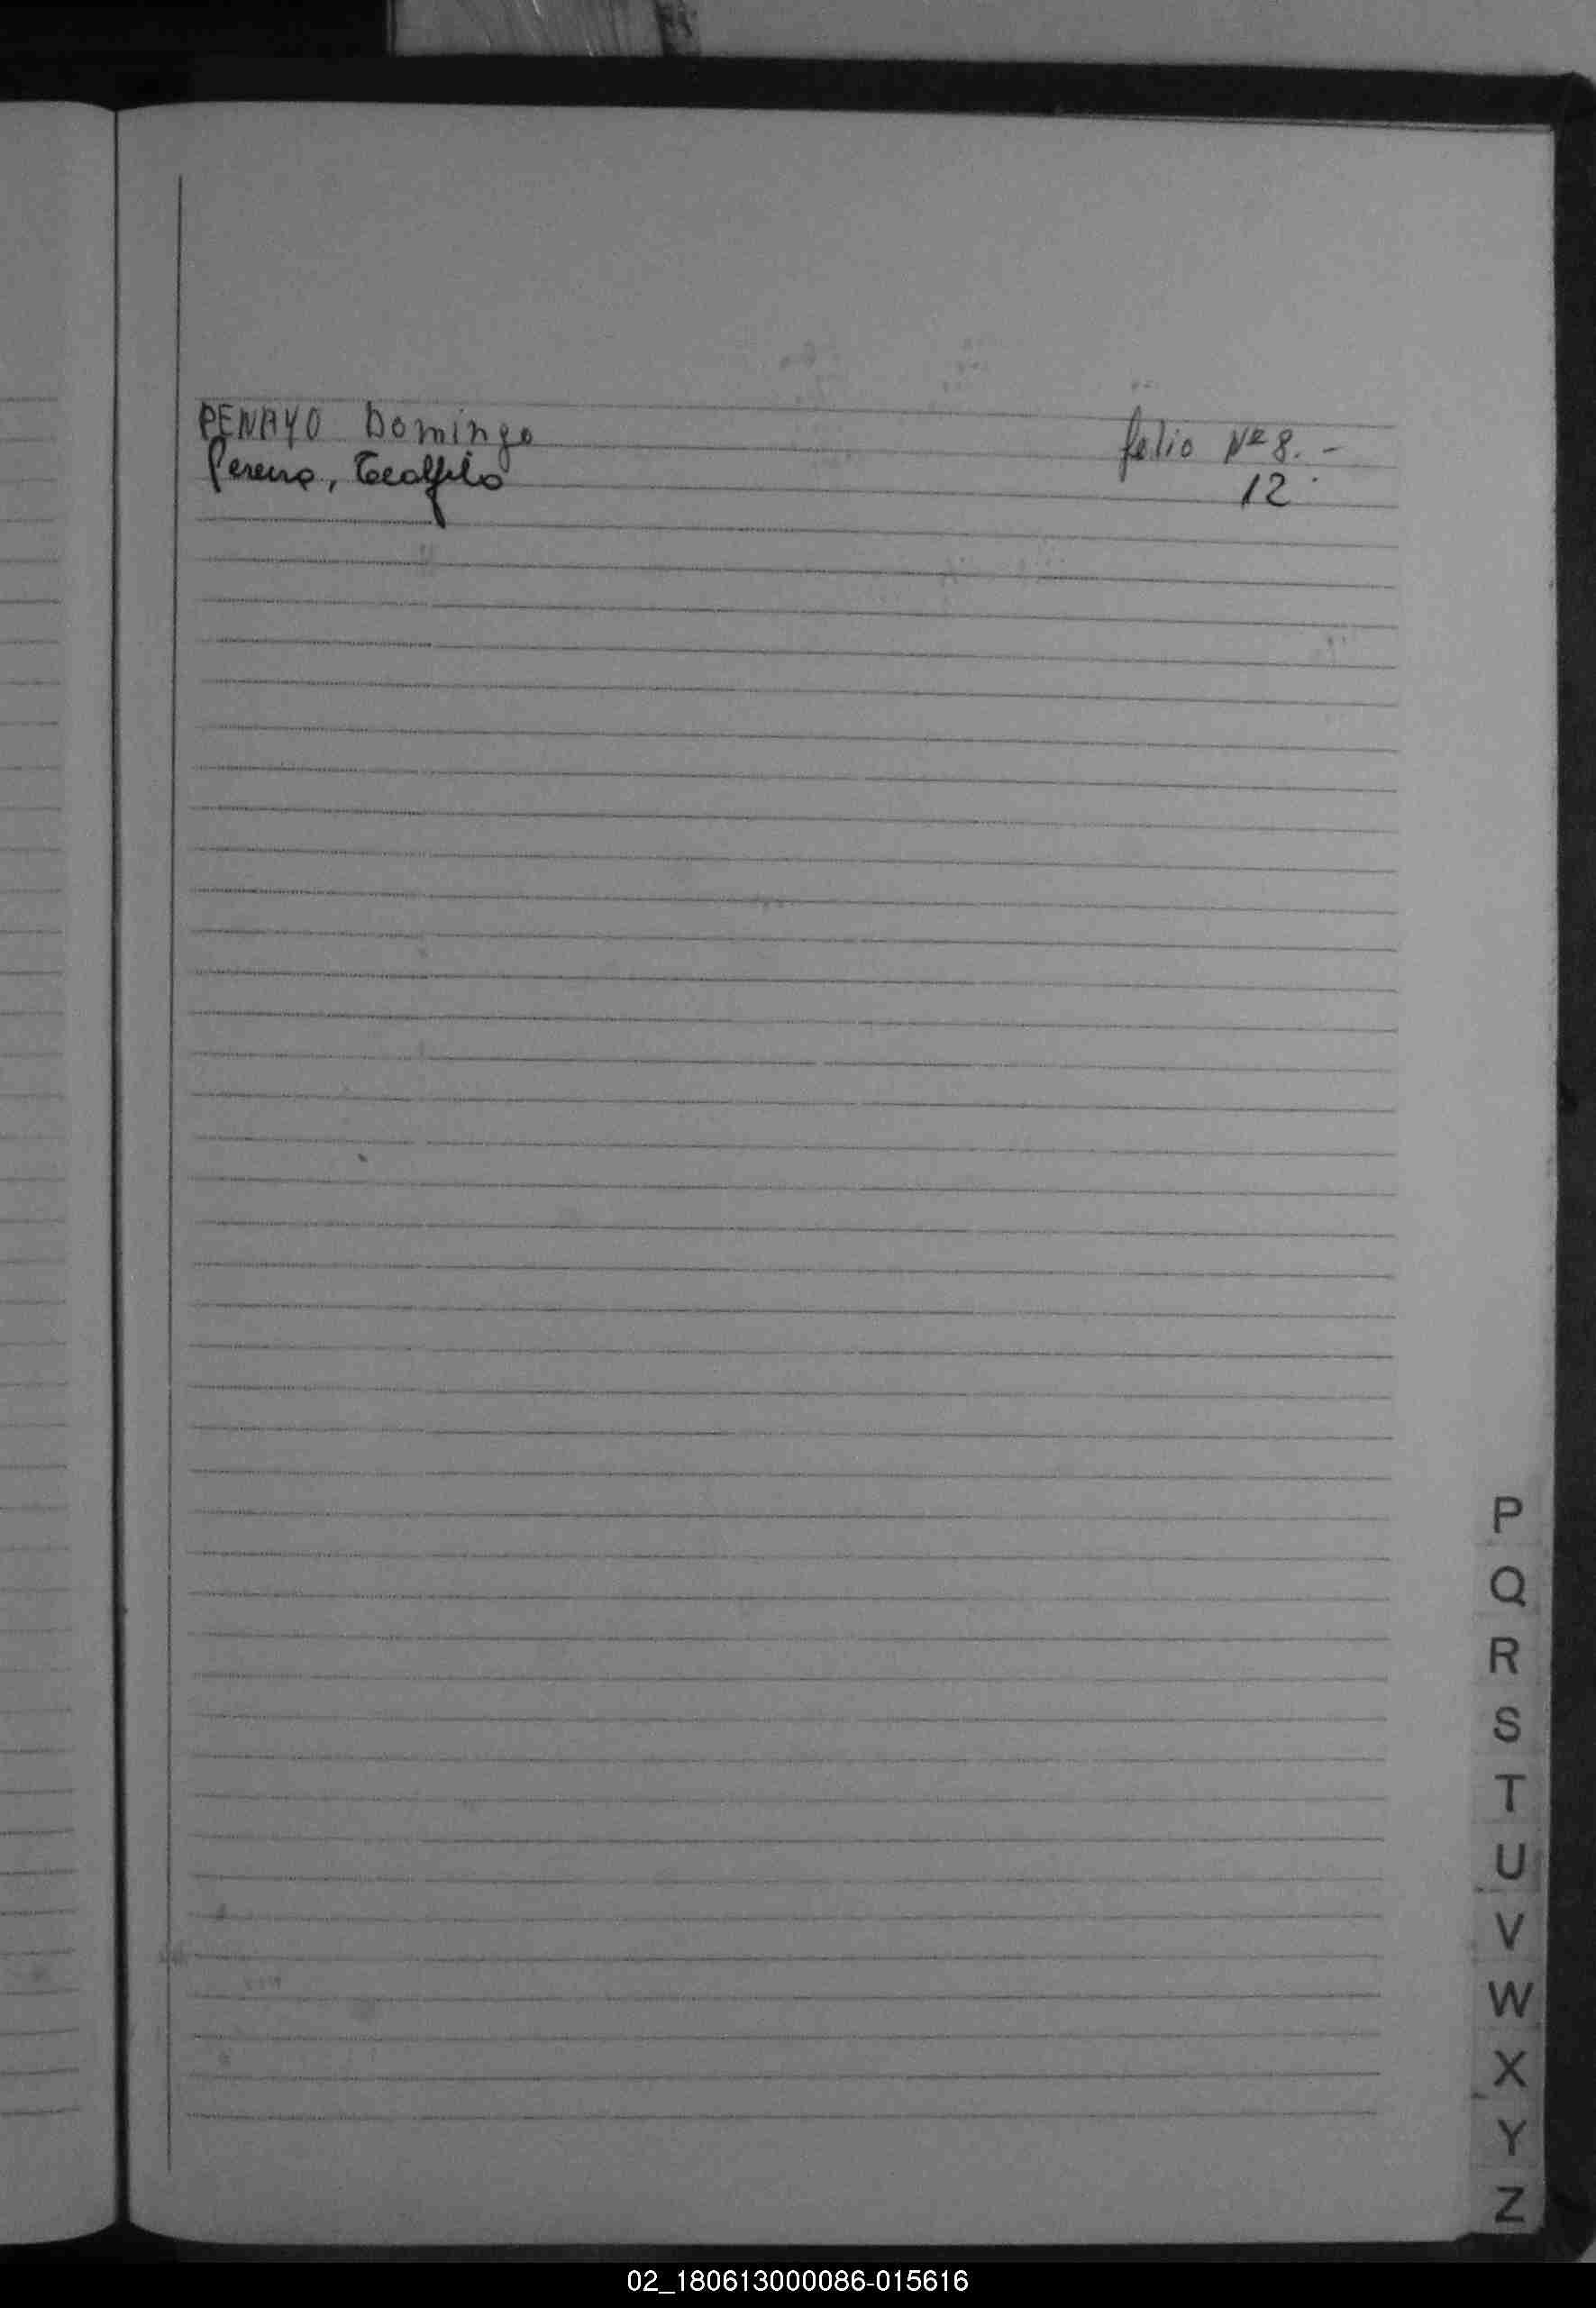 PENAYO Domingo folio Nº 8. -
Pereira, Teolfilo 12
P
Q
R
S
T
U
V
W
X
Y
Z
02_180613000086-015616